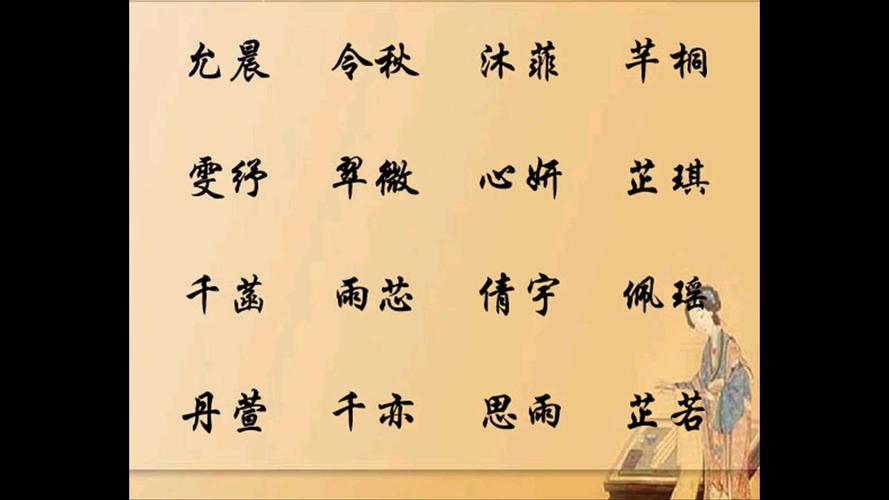 允晨 令秋 沐菲 芊桐
雯纾 翠微 心妍 芷琪
千菡 雨芯 倩宇 佩瑶
丹萱 千亦 思雨 芷若